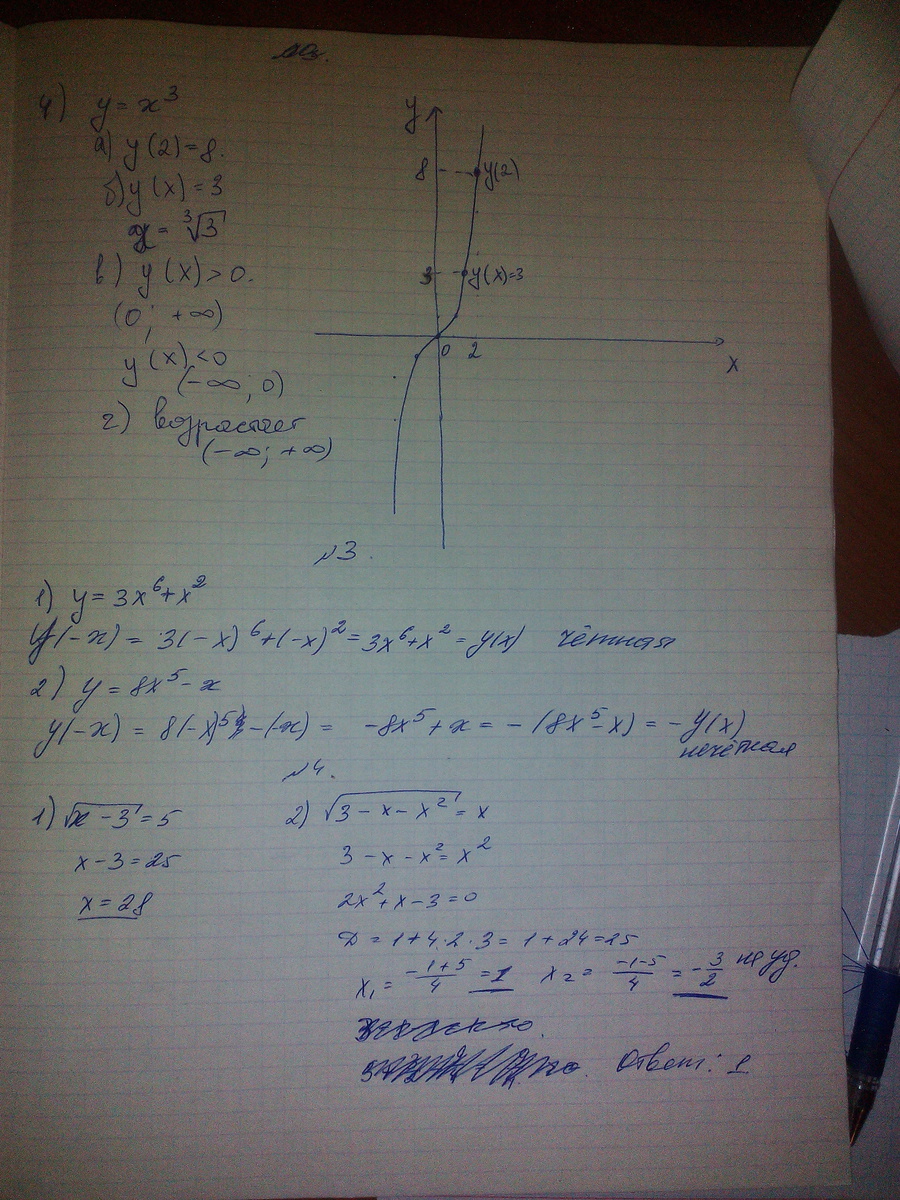 4) y = x³
а) y(2)=8.
б) y(x) = 3
x = ³√3
в) y(x) > 0.
(0; +∞)
y(x) < 0
(-∞; 0)
г) возрастает
(-∞; +∞)
y
8
y(2)
3
y(x)=3
0 2
x
№3.
1) y = 3x⁶+x²
y(-x) = 3(-x)⁶+(-x)² = 3x⁶+x² = y(x) чётная
2) y = 8x⁵-x
y(-x) = 8(-x)⁵-(-x) = -8x⁵+x = -(8x⁵-x) = -y(x)
нечётная
№4.
1) √x-3 = 5
x-3 = 25
x = 28
2) √3-x-x² = x
3-x-x² = x²
2x²+x-3=0
D = 1+4·2·3 = 1+24=25
x₁ = -1+5/4 = 1 x₂ = -1-5/4 = -3/2 не уд.
Ответ: 1